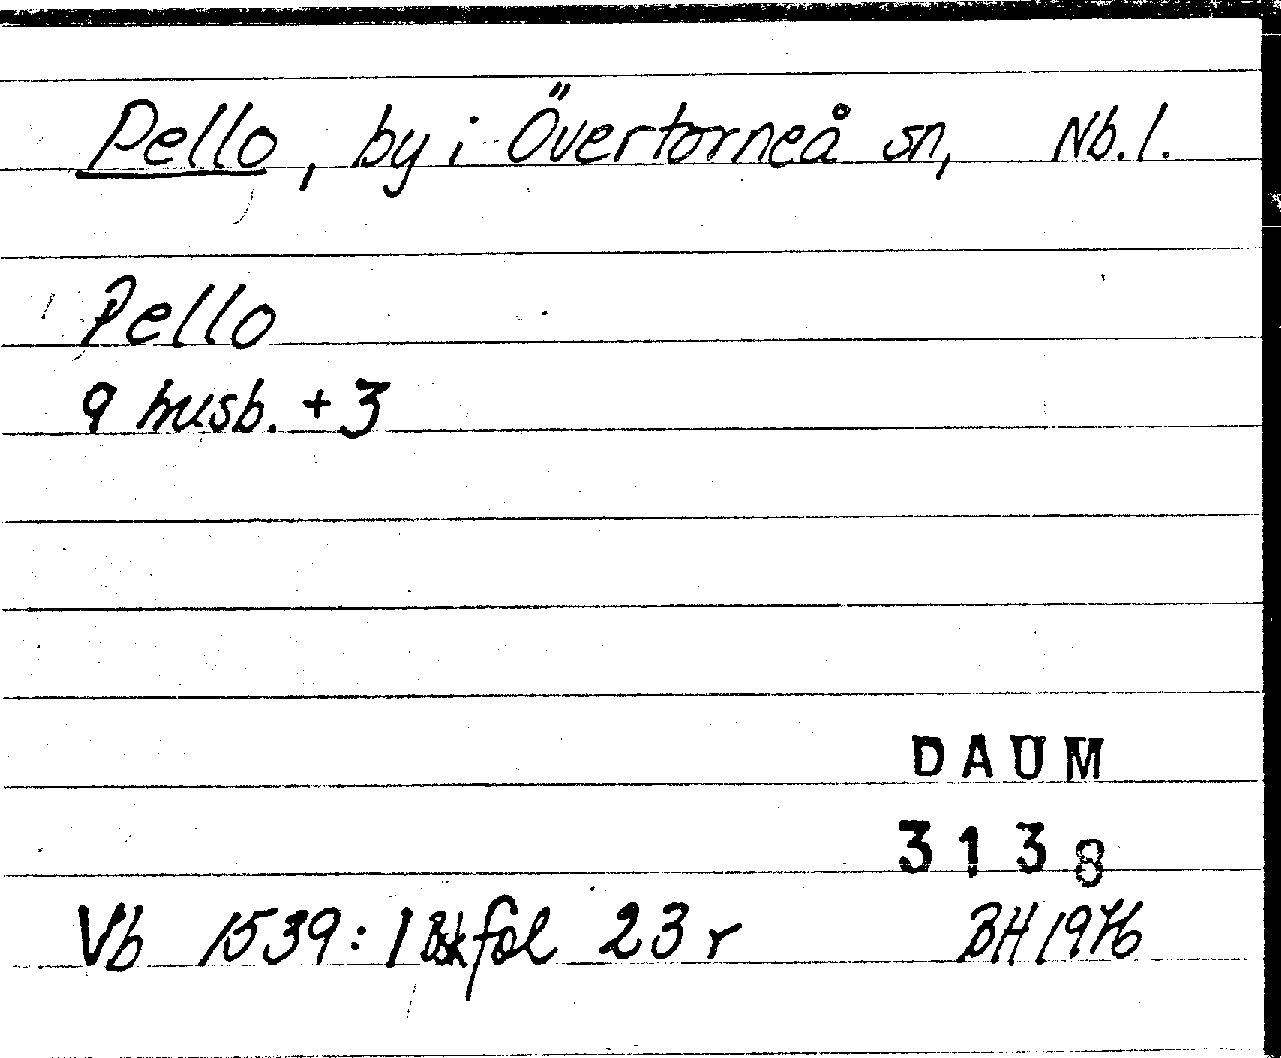 Pello, by i Övertorneå sn, Nb. l.
Pello
9 husb. + 3
DAUM
3138
Vb 1539: 1 fol 23 r BH 1976